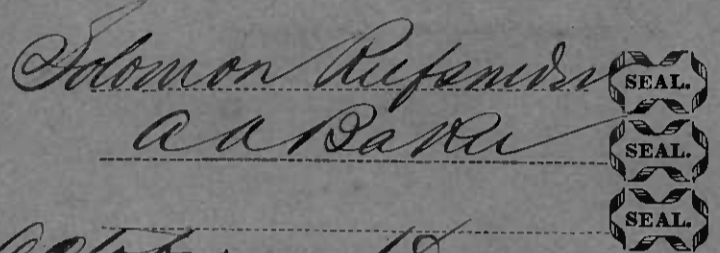 Solomon Riefsnider SEAL.
A A Baker SEAL.
SEAL.
October 12